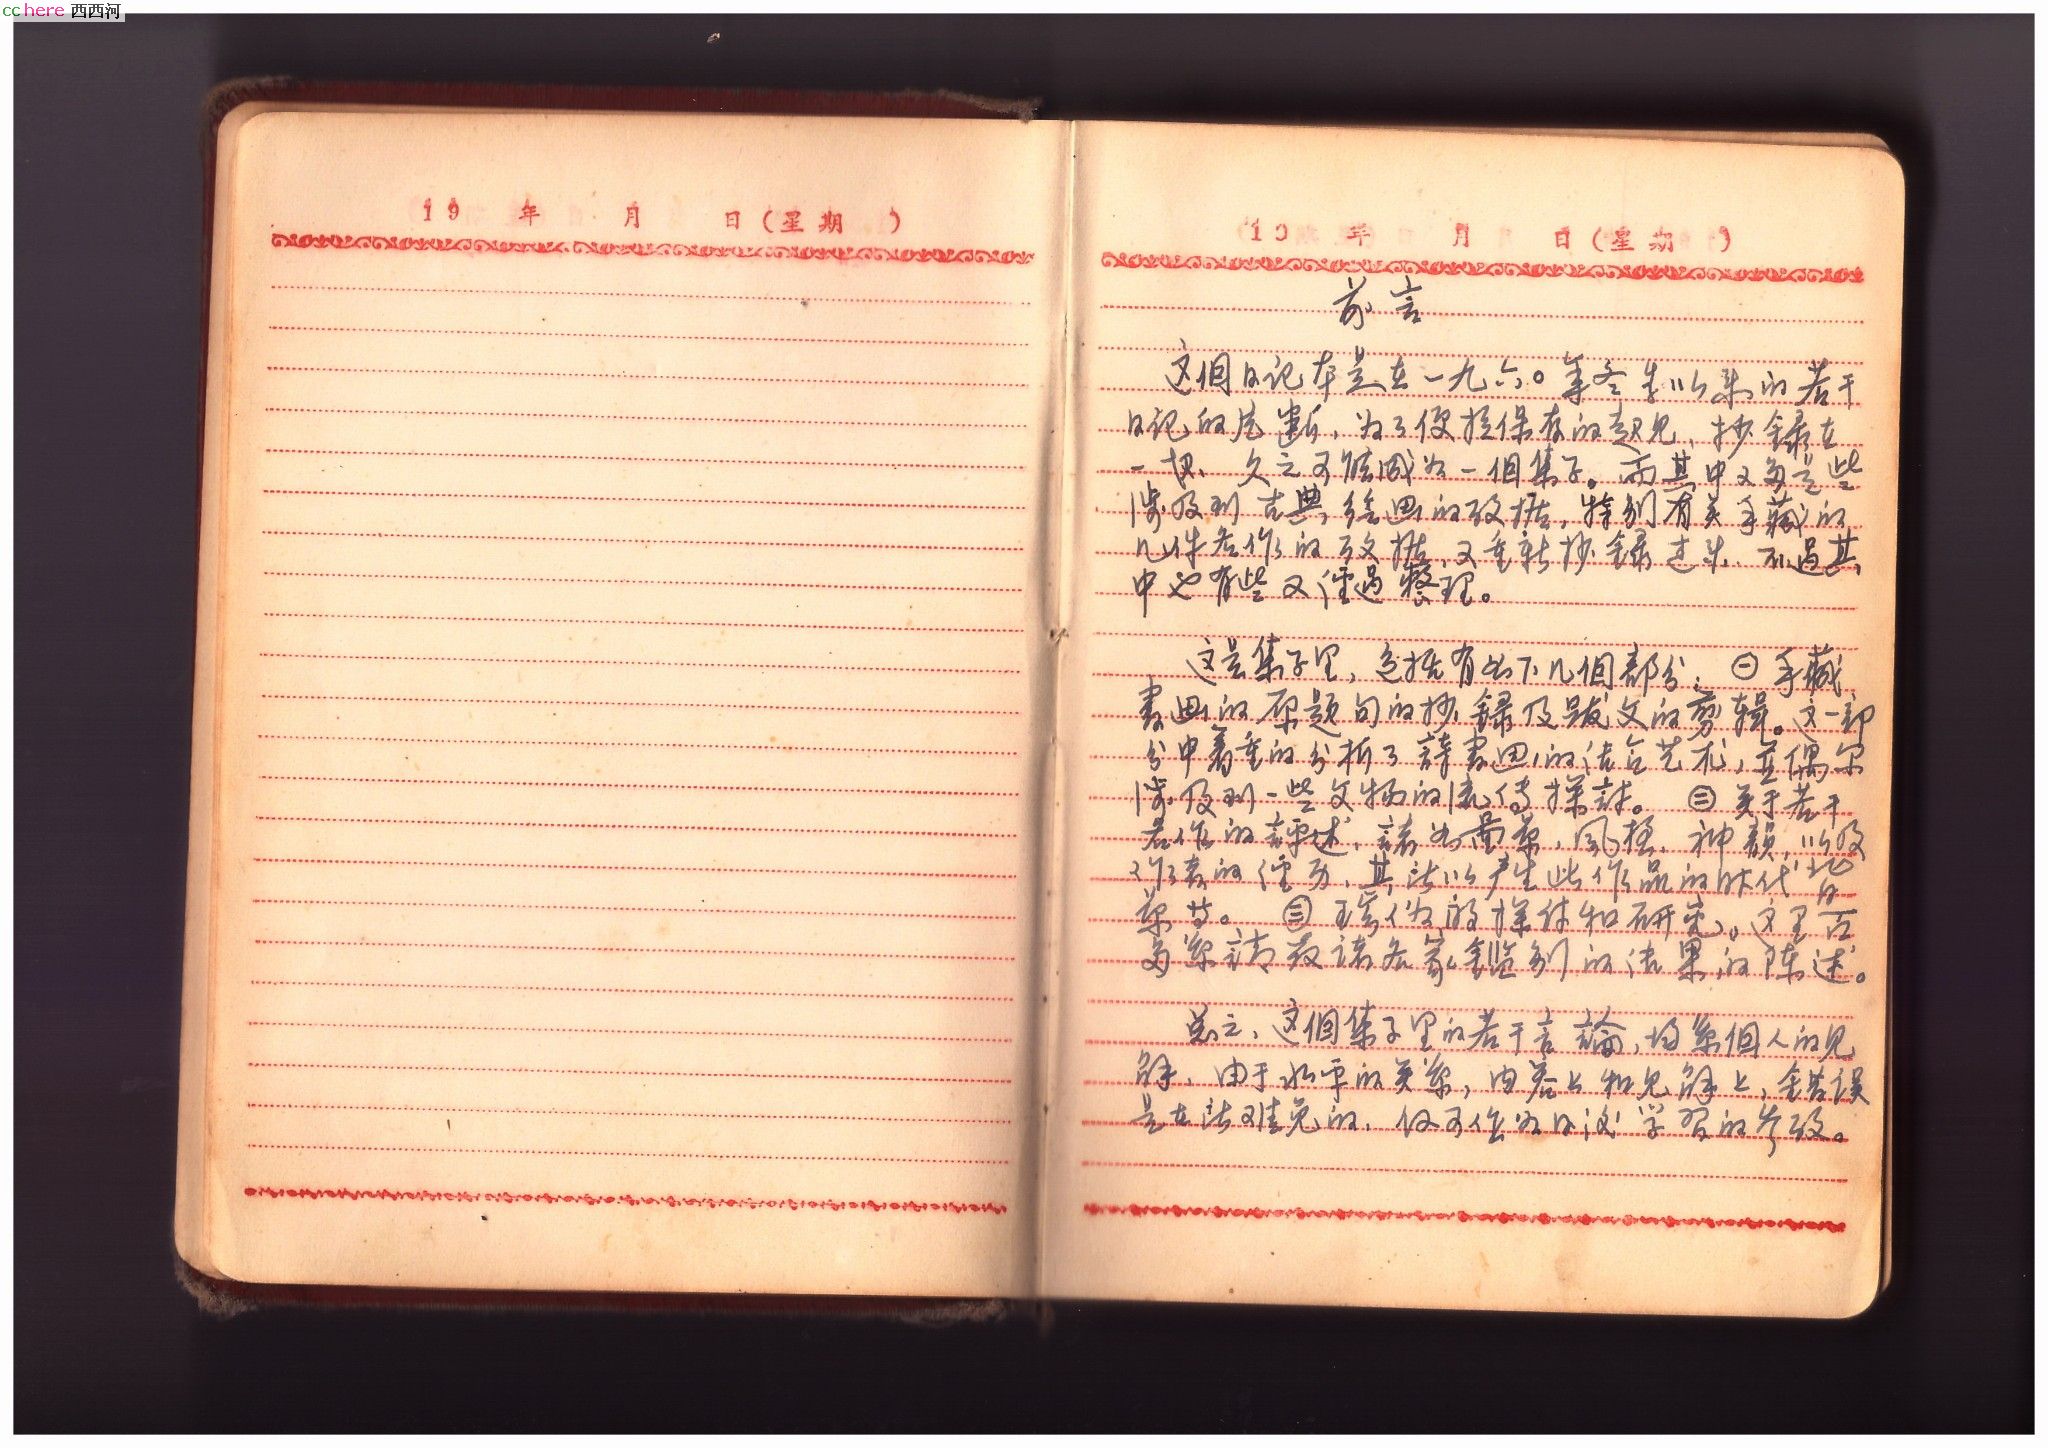 cchere 西西河
19 年 月 日(星期 )
19 年 月 日(星期 )
前言
这個日记本是在一九六〇年冬季以来的若干
日记的片断，为了便于保存的起见，抄録在
一起，久之可能成为一個集子。而其中又多是些
涉及到古典绘画的考据，特别有关手藏的
几件名作的考据，又重新抄録过来，不过其
中也有些又经過整理。
这是集子里，包括有如下几個部分：㊀手藏
書画的原题句的抄録及跋文的剪辑。这一部
分中着重的分析了詩書画的结合艺术，並偶尔
涉及到一些文物的流传探討。㊁关于若干
名作的評述，諸如畫景，風格，神韻，以及
作者的经历，其所以产生此作品的时代背
景等。㊂真伪的探讨和研究。这里
多系請教諸名家鑑别的结果的陈述。
总之，这個集子里的若干言論，均系個人的見
解，由于水平的关系，内容上和見解上，錯误
是在所难免的，仅可作为日後学習的参考。